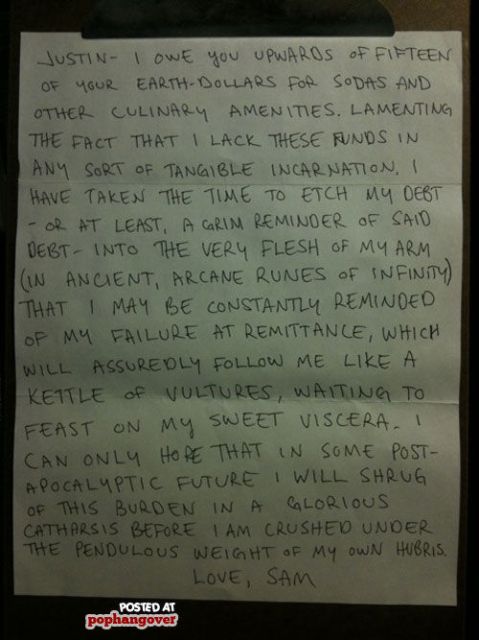 JUSTIN- I OWE YOU UPWARDS OF FIFTEEN
OF YOUR EARTH-DOLLARS FOR SODAS AND
OTHER CULINARY AMENITIES. LAMENTING
THE FACT THAT I LACK THESE FUNDS IN
ANY SORT OF TANGIBLE INCARNATION, I
HAVE TAKEN THE TIME TO ETCH MY DEBT
- OR AT LEAST, A GRIM REMINDER OF SAID
DEBT- INTO THE VERY FLESH OF MY ARM
(IN ANCIENT, ARCANE RUNES OF INFINITY)
THAT I MAY BE CONSTANTLY REMINDED
OF MY FAILURE AT REMITTANCE, WHICH
WILL ASSUREDLY FOLLOW ME LIKE A
KETTLE OF VULTURES, WAITING TO
FEAST ON MY SWEET VISCERA. I
CAN ONLY HOPE THAT IN SOME POST-
APOCALYPTIC FUTURE I WILL SHRUG
OF THIS BURDEN IN A GLORIOUS
CATHARSIS BEFORE I AM CRUSHED UNDER
THE PENDULOUS WEIGHT OF MY OWN HUBRIS.
LOVE, SAM
POSTED AT
pophangover